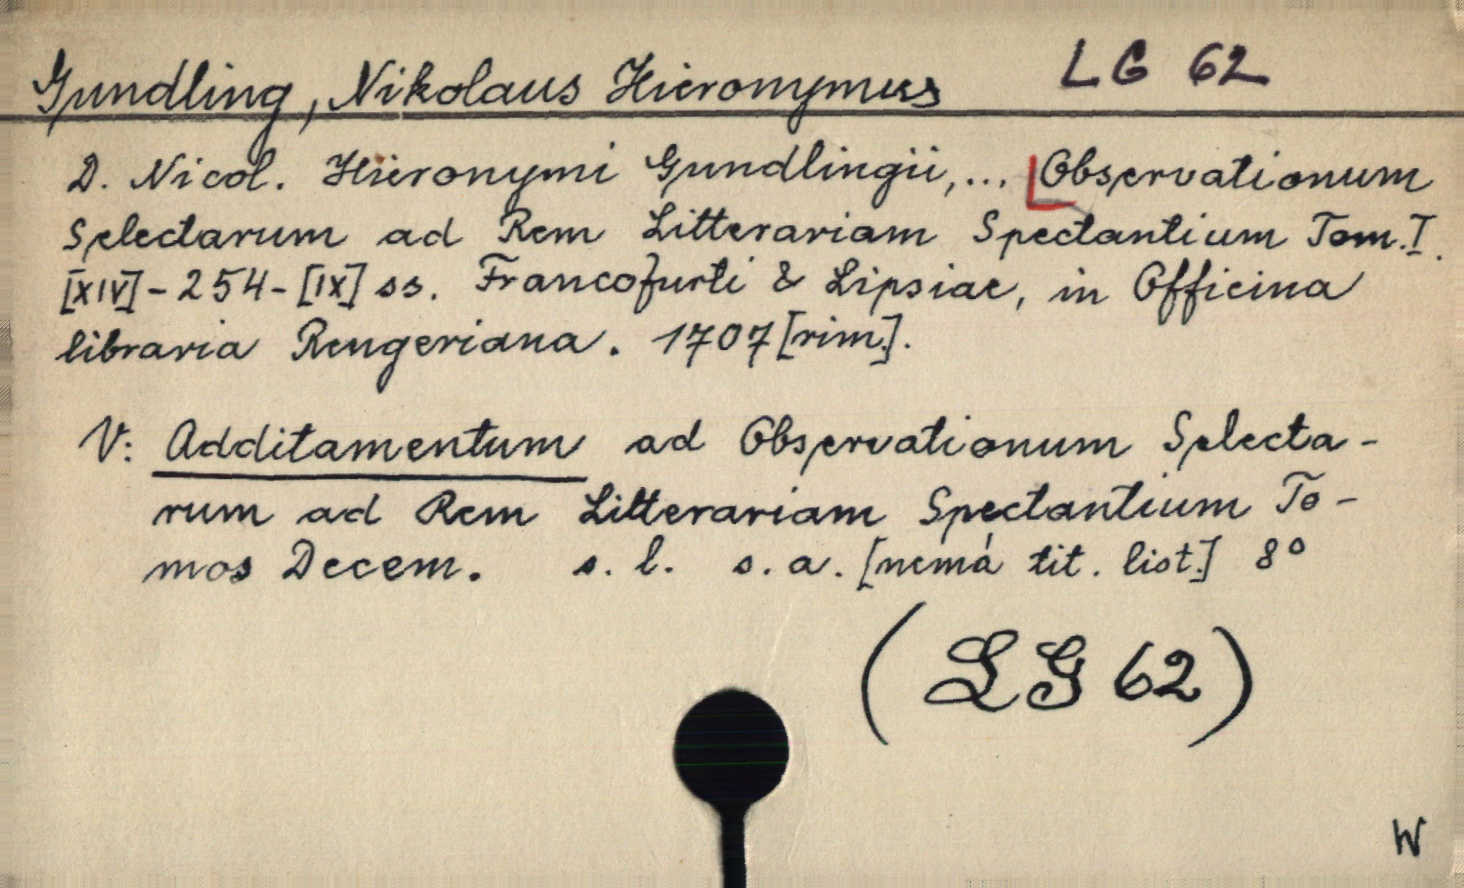 LG 62
Gundling, Nikolaus Hieronymus
D. Nicol. Hieronymi Gundlingii,... Observationum
Selectarum ad Rem Litterariam Spectantium Tom. I.
[XIV]-254-[IX] ss. Francofurti & Lipsiae, in Officina
libraria Rengeriana. 1707 [rim.].
V: Additamentum ad Observationum Selecta-
rum ad Rem Litterariam Spectantium To-
mos Decem. s. l. s. a. [nemá tit. list.] 8°
(LG 62)
W